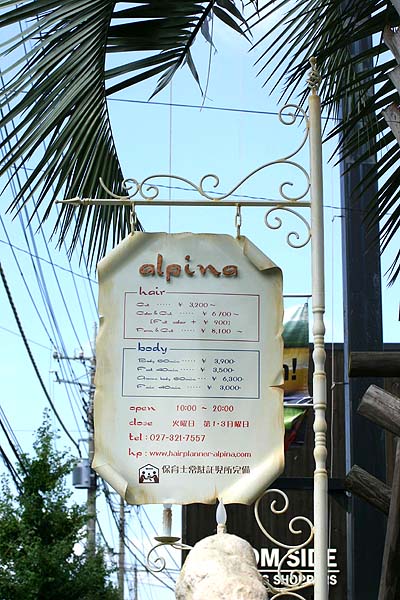 alpina
hair
Cut ...... ¥ 3,200 ~
Color & Cut ...... ¥ 6700 ~
(Full color + ¥ 900)
Perm & Cut ...... ¥ 8,100 ~
body
Body 60min ...... ¥ 3,900-
Foot 40min ...... ¥ 3,500-
Aroma body 60min ... ¥ 6,300-
Hair 40min ...... ¥ 3,000-
open 10:00 ~ 20:00
close 火曜日 第1・3月曜日
tel : 027-321-7557
hp : www.hairplanner-alpina.com
保育士常駐託児所完備
OM SIDE
G SHOPPERS